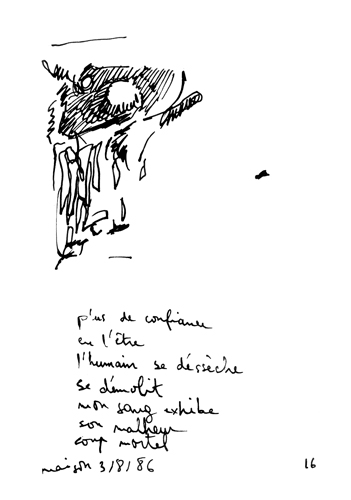 plus de confiance
en l'être
l'humain se dessèche
se démolit
mon sang exhibe
son malheur
coup mortel
maison 3/8/86
16